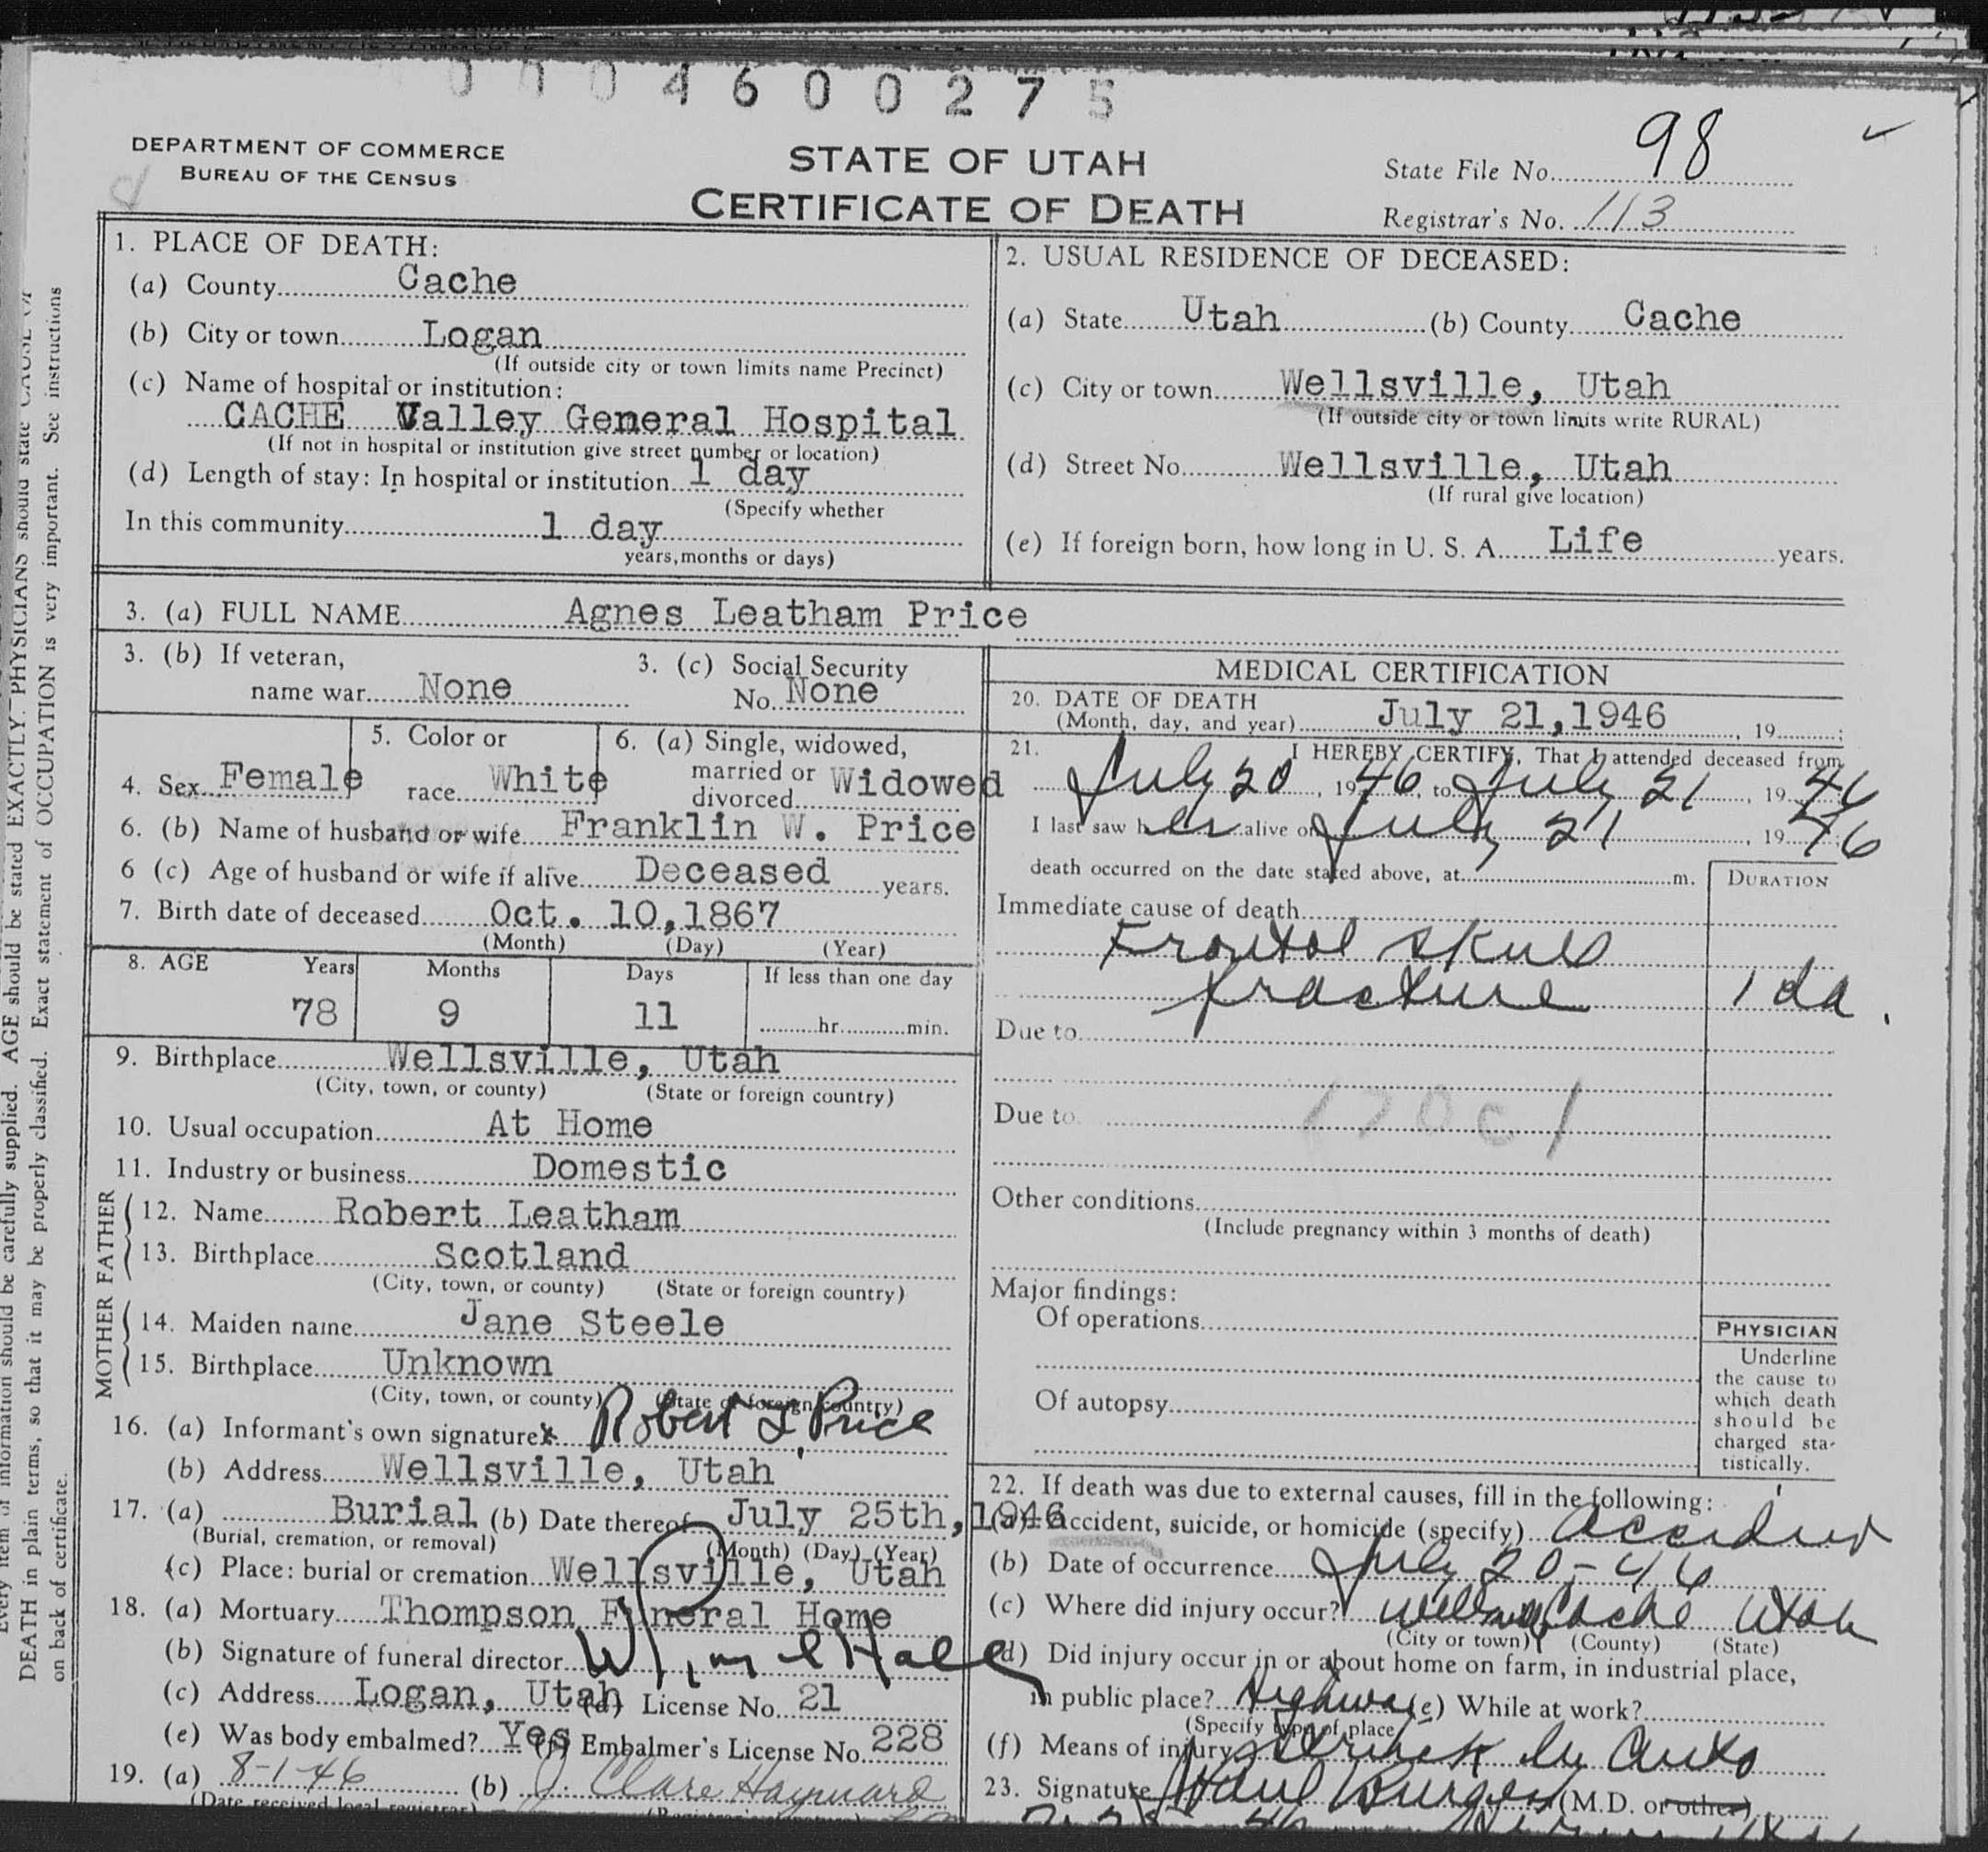 0004600275
DEPARTMENT OF COMMERCE
BUREAU OF THE CENSUS
STATE OF UTAH
CERTIFICATE OF DEATH
State File No. 98
Registrar's No. 113
1. PLACE OF DEATH:
(a) County Cache
(b) City or town Logan
(If outside city or town limits name Precinct)
(c) Name of hospital or institution:
CACHE Valley General Hospital
(If not in hospital or institution give street number or location)
(d) Length of stay: In hospital or institution 1 day
(Specify whether
In this community 1 day
years, months or days)
2. USUAL RESIDENCE OF DECEASED:
(a) State Utah (b) County Cache
(c) City or town Wellsville, Utah
(If outside city or town limits write RURAL)
(d) Street No. Wellsville, Utah
(If rural give location)
(e) If foreign born, how long in U. S. A. Life years.
3. (a) FULL NAME Agnes Leatham Price
3. (b) If veteran,
name war None
3. (c) Social Security
No. None
4. Sex Female
5. Color or
race White
6. (a) Single, widowed,
married or
divorced Widowed
6. (b) Name of husband or wife Franklin W. Price
6 (c) Age of husband or wife if alive Deceased years.
7. Birth date of deceased Oct. 10,1867
(Month) (Day) (Year)
8. AGE Years Months Days If less than one day
78 9 11 hr. min.
9. Birthplace Wellsville, Utah
(City, town, or county) (State or foreign country)
10. Usual occupation At Home
11. Industry or business Domestic
FATHER
12. Name Robert Leatham
13. Birthplace Scotland
(City, town, or county) (State or foreign country)
MOTHER
14. Maiden name Jane Steele
15. Birthplace Unknown
(City, town, or county) (State or foreign country)
16. (a) Informant's own signature x Robert L. Price
(b) Address Wellsville, Utah
17. (a) Burial (b) Date thereof July 25th, 1946
(Burial, cremation, or removal) (Month) (Day) (Year)
(c) Place: burial or cremation Wellsville, Utah
18. (a) Mortuary Thompson Funeral Home
(b) Signature of funeral director Hall
(c) Address Logan, Utah (d) License No. 21
(e) Was body embalmed? Yes (f) Embalmer's License No. 228
19. (a) 8-1-46 (b) J. Clare Hayward
(Date received local registrar)
MEDICAL CERTIFICATION
20. DATE OF DEATH
(Month, day, and year) July 21,1946 , 19 ;
21. I HEREBY CERTIFY, That I attended deceased from
July 20, 1946, to July 21, 1946
I last saw her alive on July 21, 1946
death occurred on the date stated above, at m.
DURATION
Immediate cause of death
Frontal skull
fracture 1 da.
Due to
Due to
Other conditions
(Include pregnancy within 3 months of death)
Major findings:
Of operations
Of autopsy
PHYSICIAN
Underline
the cause to
which death
should be
charged sta-
tistically.
22. If death was due to external causes, fill in the following:
(a) Accident, suicide, or homicide (specify) Accident
(b) Date of occurrence July 20-46
(c) Where did injury occur? Wellsville Cache Utah
(City or town) (County) (State)
(d) Did injury occur in or about home on farm, in industrial place,
in public place? Highway (e) While at work?
(Specify type of place)
(f) Means of injury Struck by Auto
23. Signature Paul Burgess (M.D. or other)
Every item of information should be carefully supplied. AGE should be stated EXACTLY. PHYSICIANS should state CAUSE OF
DEATH in plain terms, so that it may be properly classified. Exact statement of OCCUPATION is very important. See instructions
on back of certificate.